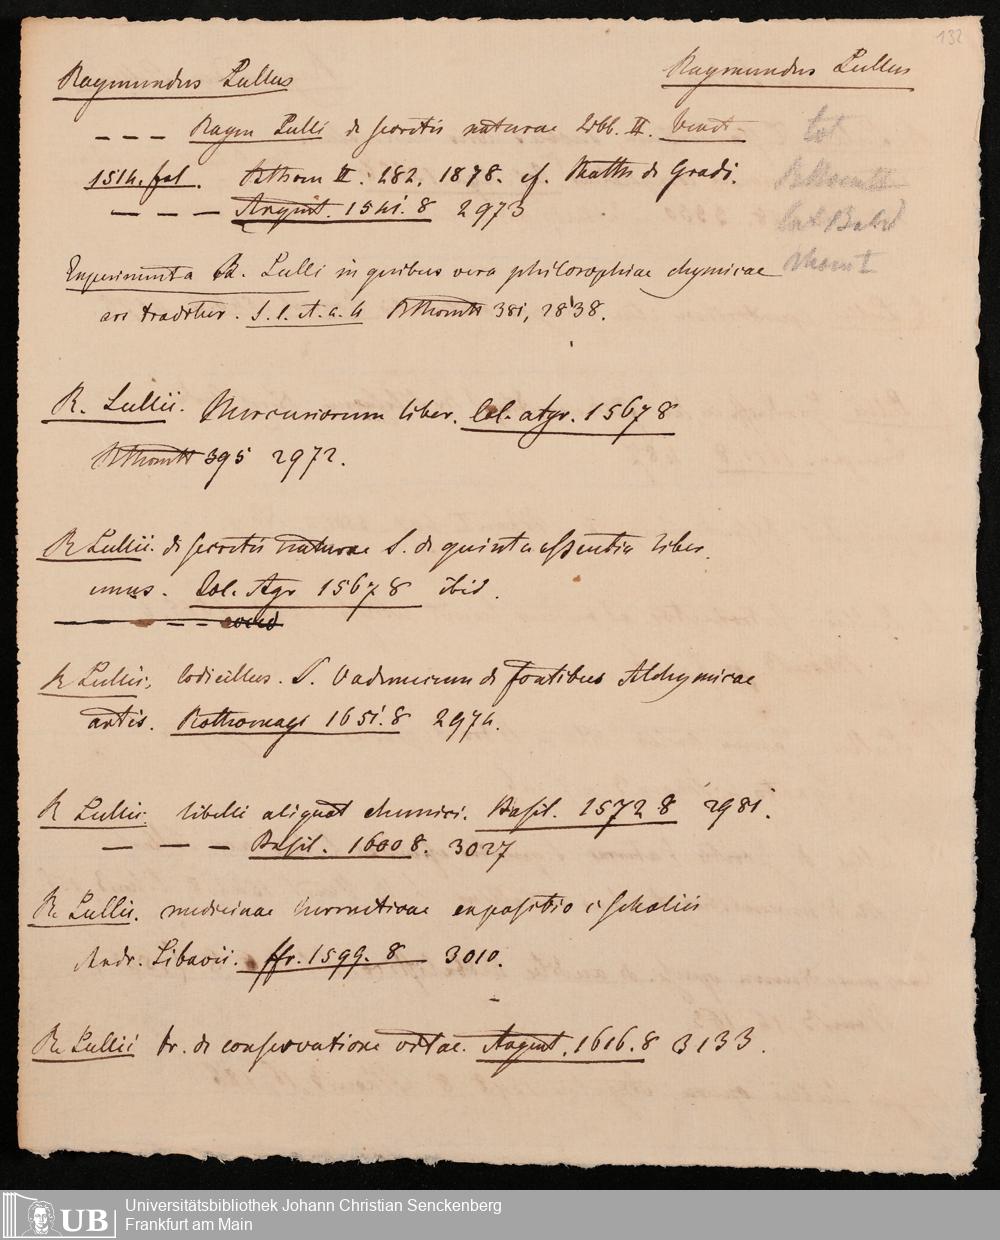 132
Raymundus Lullus Raymundus Lullus
– – – Raym Lulli de secretis naturae Libb. II. Venet.
1514. fol. Rthom II. 282, 1878. cf. Matth de Gradi.
tot
– – – Argent. 1541. 8 2973
Experimenta R. Lulli in quibus vera philosophiae chymicae
ars traditur. S. l. et. a. 4 Rthomts 381, 2838.
R. Lullii. Mercuriorum liber. Col. Agr. 1567 8
Rthomts 395 2972.
R Lullii. de secretis naturae S. de quinta essentia liber
unus. Col. Agr 1567 8 ibid.
R Lullii. Codicillus. S. Vademecum de fontibus Alchymicae
artis. Rothomagi 1651. 8 2974.
R Lullii. libelli aliquot chemici. Basil. 1572 8 2981.
– – – Basil. 1600 8. 3027
R. Lullii. medicinae hermeticae expositio c scholiis
Andr. Libavii. ffr. 1599. 8 3010.
R. Lullii tr. de conservatione vitae. Argent. 1616. 8 3133.
UB
Universitätsbibliothek Johann Christian Senckenberg
Frankfurt am Main